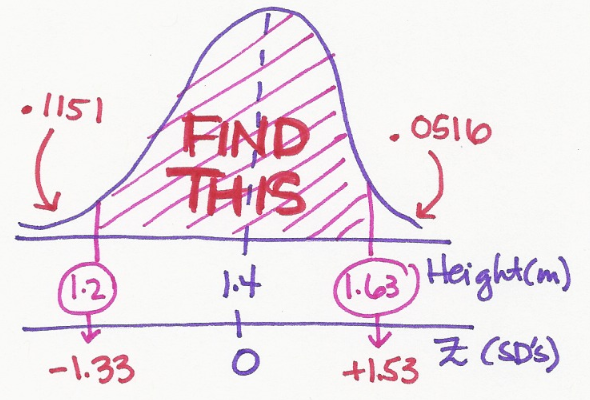 .1151
.0516
FIND
THIS
1.2
1.4
1.63
Height(m)
-1.33
0
+1.53
Z (SD's)